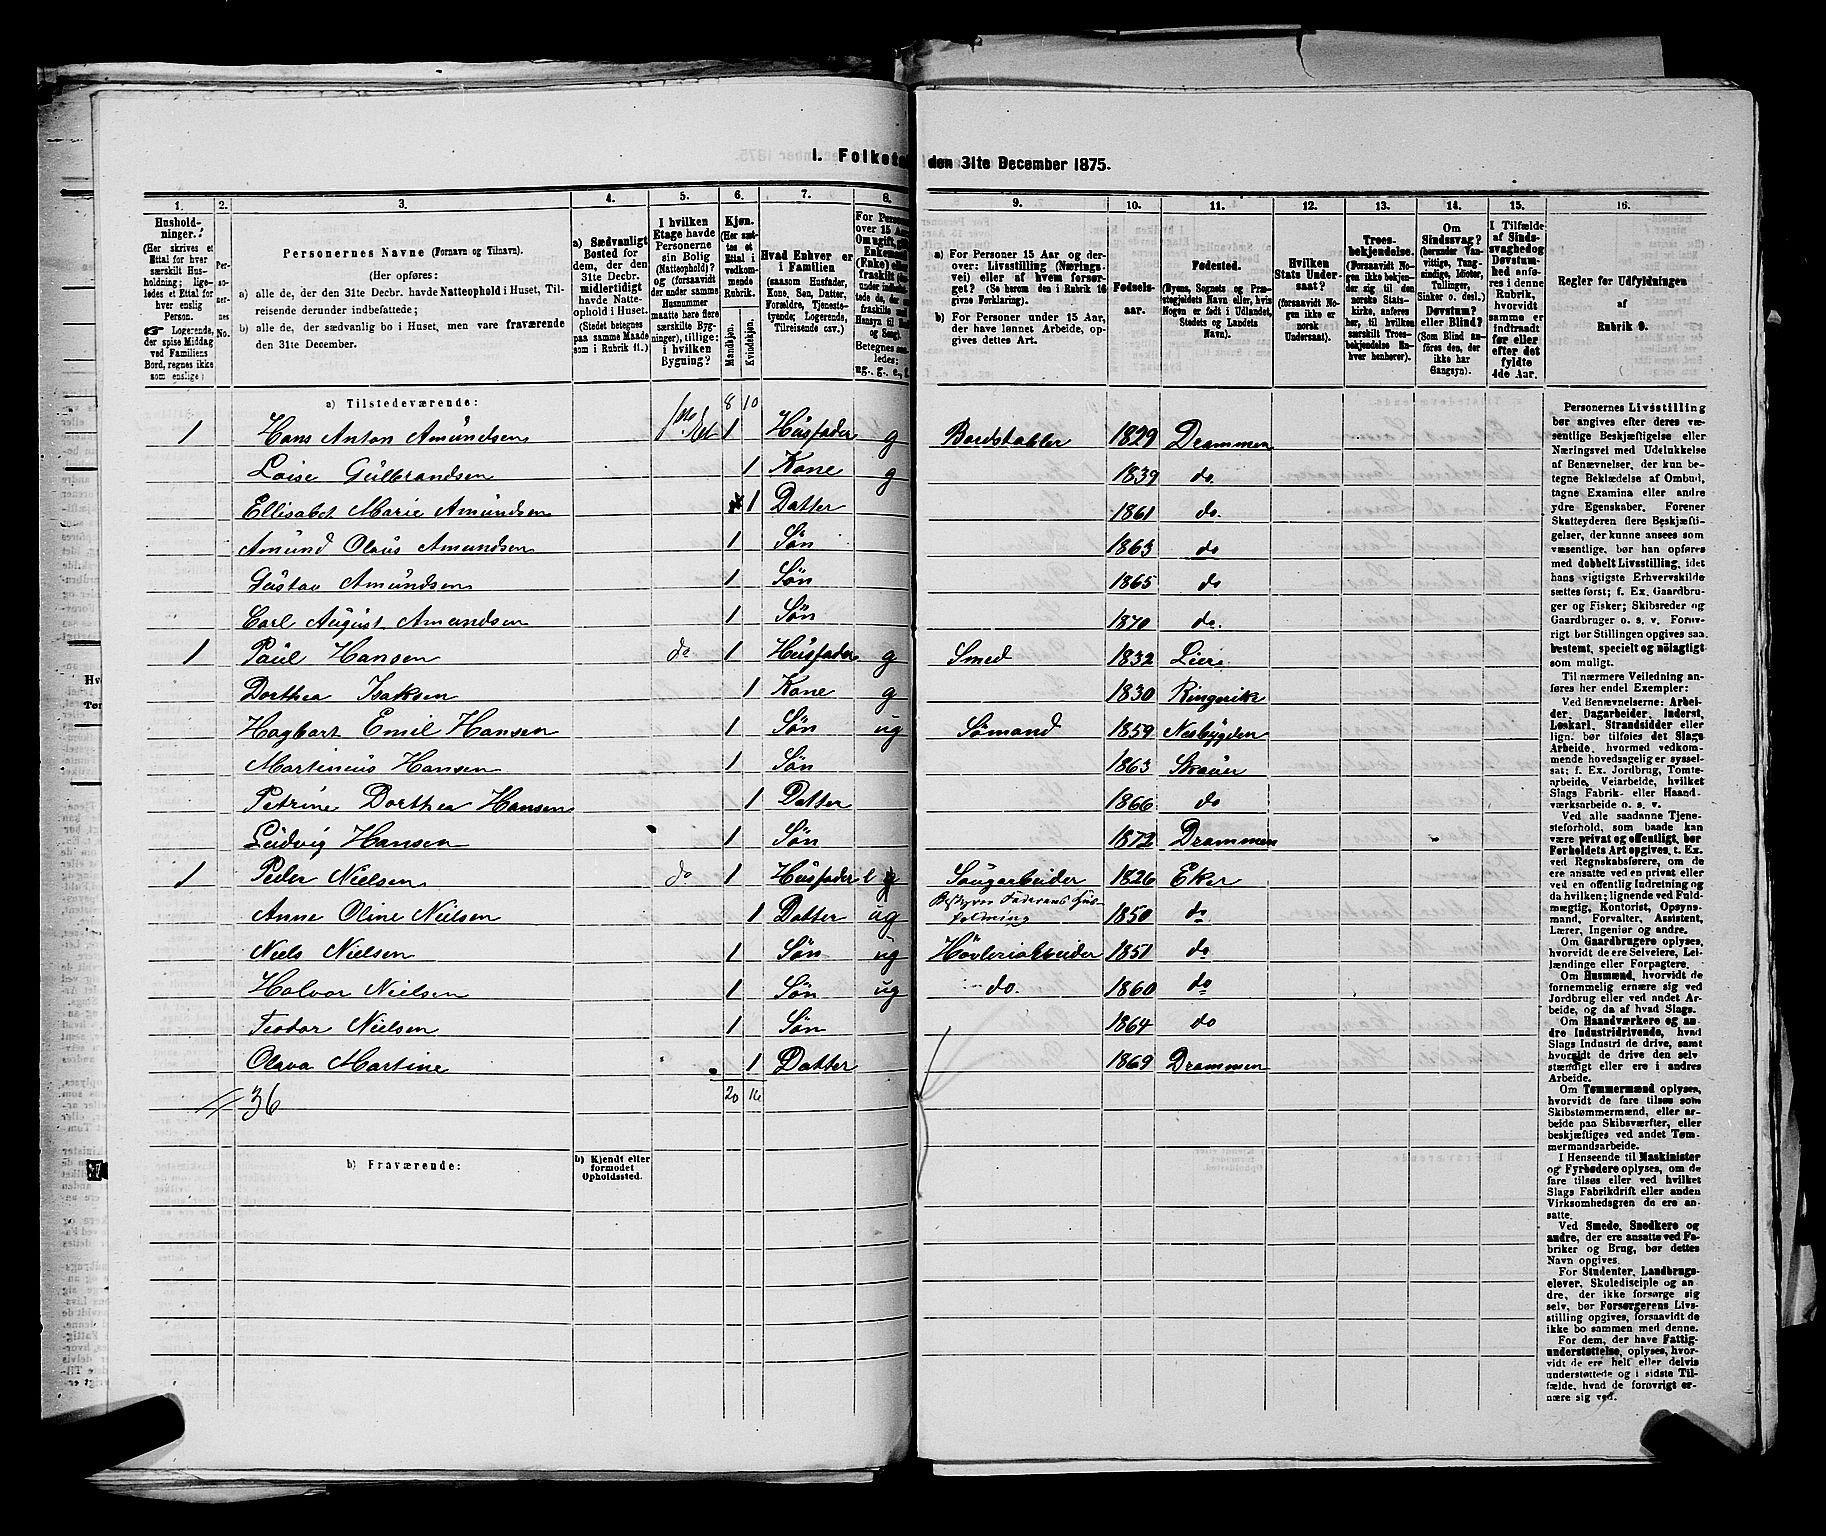 I. Folketæ
den 31te December 1875.
1. 2. 3. 4. 5. 6. 7. 8. 9. 10. 11. 12. 13. 14. 15. 16.
Hushold-
ninger.
(Her skrives et
Ettal for hver
særskilt Hus-
holdning; lige-
ledes et Ettal for
hver enslig
Person.
Logerende,
der spise Middag
ved Familiens
Bord, regnes ikke
som enslige)
Per-
so-
ner-
nes
No.
Personernes Navne (Fornavn og Tilnavn).
(Her opføres:
a) alle de, der den 31te Decbr. havde Natteophold i Huset, Til-
reisende derunder indbefattede;
b) alle de, der sædvanlig bo i Huset, men vare fraværende
den 31te December.
a) Sædvanligt
Bosted for
dem, der den
31te Decbr.
midlertidigt
havde Natte-
ophold i Huset.
(Stedet betegnes
paa samme Maade
som i Rubrik 11.)
I hvilken
Etage havde
Personerne
sin Bolig
(Natteophold)?
og (forsaavidt
der under samme
Husnummer
maatte høre flere
særskilte Byg-
ninger), tillige:
i hvilken
Bygning?
Kjøn.
(Her sæt-
tes et
Ettal i
vedkom-
mende
Rubrik.
Mandkjøn.
Kvindekjøn.
Hvad Enhver er
i Familien
(saasom Husfader,
Kone, Søn, Datter,
Forældre, Tjeneste-
tyende; Logerende,
Tilreisende osv.)
For Personer
over 15 Aar:
Om ugift, gift,
Enkemand
(Enke) eller
fraskilt
Betegnes saa-
ledes:
ug., g., e., f.
a) For Personer 15 Aar og der-
over: Livsstilling (Nærings-
vei) eller af hvem forsør-
get? (Se herom den i Rubrik 16
givne Forklaring).
b) For Personer under 15 Aar,
der have lønnet Arbeide, op-
gives dettes Art.
Fødsels-
aar.
Fødested.
(Byens, Sognets og Præ-
stegjeldets Navn eller, hvis
Nogen er født i Udlandet,
Stedets og Landets
Navn).
Hvilken
Stats Under-
saat?
(forsaavidt No-
gen ikke er
norsk
Undersaat).
Troes-
bekjendelse.
(Forsaavidt No-
gen ikke bekjen-
der sig til den
norske Stats-
kirke, anføres
her, til hvilken
særskilt Troes-
bekjendelse En-
hver henhører).
Om
Sindssvag?
(herunder Van-
vittige, Tung-
sindige, Idioter,
Tullinger,
Sinker o. desl.)
Døvstum?
eller Blind?
(Som Blind an-
føres den, der
ikke har
Gangsyn).
I Tilfælde
af Sinds-
svaghed og
Døvstum-
hed anfø-
res i denne
Rubrik,
hvorvidt
samme er
indtraadt
før eller
efter det
fyldte
4de Aar.
Regler for Udfyldningen
af
Rubrik 9.
a) Tilstedeværende: 8 10
1 Hans Anton Amundsen 1ste Et 1 Husfader g Bordstabler 1829 Drammen
Loise Gulbrandsen 1 Kone g 1839 do.
Ellisabet Marie Amundsen 1 Datter 1861 do.
Amund Olaus Amundsen 1 Søn 1863 do
Gustav Amundsen 1 Søn 1865 do
Carl August Amundsen 1 Søn 1870 do.
1 Paul Hansen do 1 Husfader g Smed 1832 Lier
Dorthea Isaksen 1 Kone g 1830 Ringerike
Hagbart Emil Hansen 1 Søn ug Sömand 1859 Nesbygden
Martinius Hansen 1 Søn 1863 Skauer
Petrine Dorthea Hansen 1 Datter 1866 do
Ludvig Hansen 1 Søn 1872 Drammen
1 Peder Nielsen do 1 Husfader e Saugarbeider 1826 Eker
Anne Oline Nielsen 1 Datter ug Bestyrer Faderens Hus-
holdning 1850 do
Niels Nielsen 1 Søn ug Høvleriarbeider 1851 do
Halvor Nielsen 1 Søn ug do. 1860 do
Teodor Nielsen 1 Søn 1864 do
Olava Martine 1 Datter 1869 Drammen
36 20 16
b) Fraværende:
b) Kjendt eller
formodet
Opholdssted.
Personernes Livsstilling
bør angives efter deres væ-
sentlige Beskjæftigelse eller
Næringsvei med Udelukkelse
af Benævnelser, der kun be-
tegne Beklædelse af Ombud,
tagne Examina eller andre
ydre Egenskaber. Forener
Skatteyderen flere Beskjæfti-
gelser, der kunne ansees som
væsentlige, bør han opføres
med dobbelt Livsstilling, idet
hans vigtigste Erhvervskilde
sættes først; f. Ex. Gaardbru-
ger og Fisker; Skibsreder og
Gaardbruger o. s. v. Forøv-
rigt bør Stillingen opgives saa
bestemt, specielt og nøiagtigt
som muligt.
Til nærmere Veiledning an-
føres her endel Exempler:
Ved Benævnelserne: Arbei-
der, Dagarbeider, Inderst,
Løskarl, Strandsidder eller
lign. bør tilføies det Slags
Arbeide, hvormed vedkom-
mende hovedsagelig er syssel-
sat; f. Ex. Jordbrug, Tomte-
arbeide, Veiarbeide, hvilket
Slags Fabrik- eller Haand-
værksarbeide o. s. v.
Ved alle saadanne Tjene-
steforhold, som baade kan
være privat og offentligt, bør
Forholdets Art opgives, t. Ex.
ved Regnskabsførere, om de
ere ansatte ved en privat eller
ved en offentlig Indretning og
da hvilken; lignende ved Fuld-
mægtig, Kontorist, Opsyns-
mand, Forvalter, Assistent,
Lærer, Ingeniør og andre.
Om Gaardbrugere oplyses,
hvorvidt de ere Selveiere, Lei-
lændinge eller Forpagtere.
Om Husmænd, hvorvidt de
fornemmelig ernære sig ved
Jordbrug eller ved andet Ar-
beide, og da af hvad Slags.
Om Haandværkere og an-
dre Industridrivende, hvad
Slags Industri de drive, samt
hvorvidt de drive den selv-
stændigt eller ere i andres
Arbeide.
Om Tømmermænd oplyses,
hvorvidt de fare tilsøs som
Skibstømmermænd, eller ar-
beide paa Skibsværfter, eller
beskjæftiges ved andet Tøm-
mermandsarbeide.
I Henseende til Maskinister
og Fyrbødere oplyses, om de
fare tilsøs eller ved hvilket
Slags Fabrikdrift eller anden
Virksomhedsgren de ere an-
satte.
Ved Smede, Snedkere og
andre, der ere ansatte ved Fa-
briker og Brug, bør dettes
Navn opgives.
For Studenter, Landbrugs-
elever, Skoledisciple og an-
dre, der ikke forsørge sig
selv, bør Forsørgerens Livs-
stilling opgives, forsaavidt de
ikke bo sammen med denne.
For dem, der have Fattig-
understøttelse, oplyses, hvor-
vidt de ere helt eller delvis
understøttede og i sidste Til-
fælde, hvad de forøvrigt er-
nære sig ved.